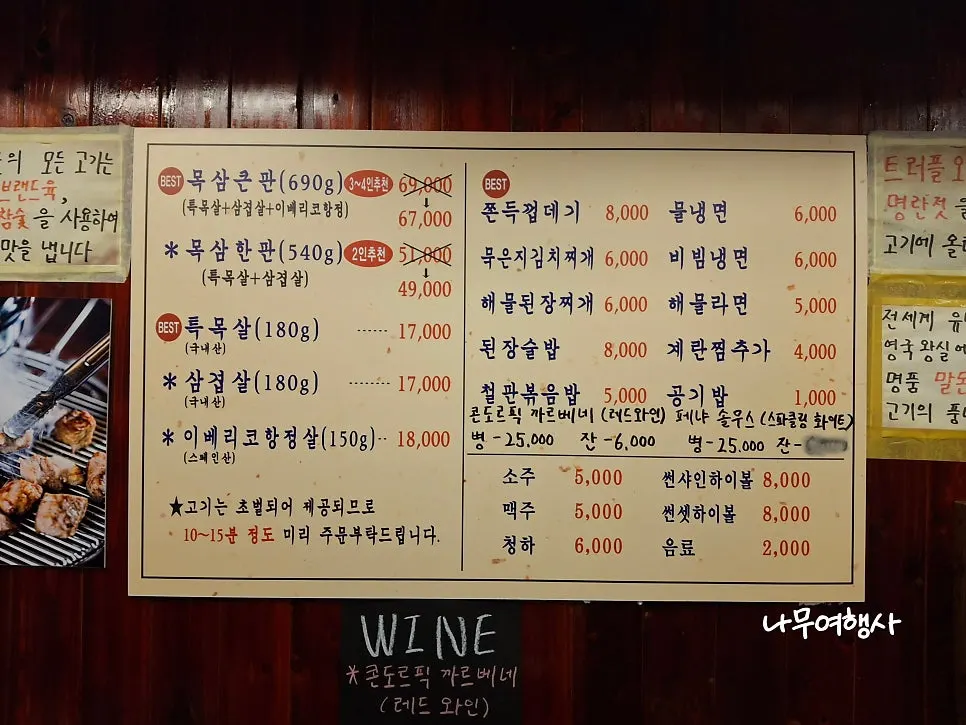 의 모든 고기는
브랜드육,
참숯을 사용하여
맛을 냅니다
BEST 목삼큰판(690g) 3~4인추천 69,000
↓
(특목살+삼겹살+이베리코항정) 67,000
* 목삼한판(540g) 2인추천 51,000
↓
(특목살+삼겹살) 49,000
BEST 특목살(180g) ------ 17,000
(국내산)
* 삼겹살(180g) -------- 17,000
(국내산)
* 이베리코항정살(150g)-- 18,000
(스페인산)
★고기는 초벌되어 제공되므로
10~15분 정도 미리 주문부탁드립니다.
BEST
쫀득껍데기 8,000 물냉면 6,000
묵은지김치찌개 6,000 비빔냉면 6,000
해물된장찌개 6,000 해물라면 5,000
된장술밥 8,000 계란찜추가 4,000
철판볶음밥 5,000 공기밥 1,000
콘도르픽 까르베네 (레드와인) 페냐 솔무스 (스파클링 화이트)
병-25,000 잔-6,000 병-25,000 잔-
소주 5,000 썬샤인하이볼 8,000
맥주 5,000 썬셋하이볼 8,000
청하 6,000 음료 2,000
트러플
명란젓
고기에
전세계
영국 왕실에
명품 말돈
고기의
WINE
*콘도르픽 까르베네
(레드 와인)
나무여행사